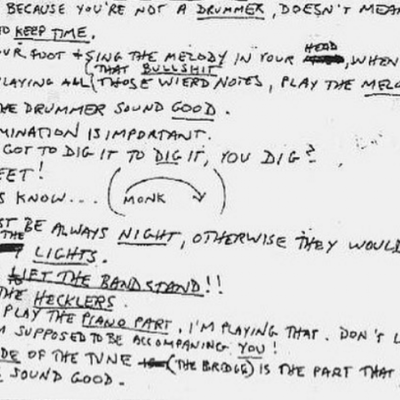 BECAUSE YOU'RE NOT A DRUMMER, DOESN'T MEAN
KEEP TIME.
OUR FOOT + SING THE MELODY IN YOUR HEAD, WHEN
PLAYING ALL (THAT BULLSHIT) THOSE WIERD NOTES, PLAY THE MELO
THE DRUMMER SOUND GOOD.
MINATION IS IMPORTANT.
GOT TO DIG IT TO DIG IT, YOU DIG?
EET!
S KNOW... (MONK)
ST BE ALWAYS NIGHT, OTHERWISE THEY WOULD
THE LIGHTS.
LIFT THE BANDSTAND!!
THE HECKLERS.
PLAY THE PIANO PART, I'M PLAYING THAT. DON'T L
M SUPPOSED TO BE ACCOMPANING YOU!
DE OF THE TUNE (THE BRIDGE) IS THE PART THAT
SOUND GOOD.